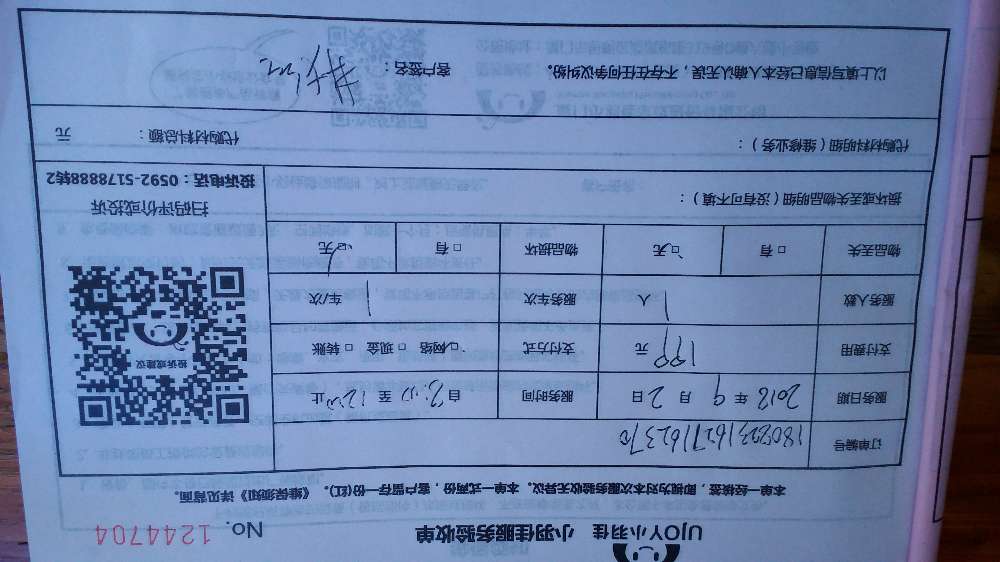 UJOY小羽佳 小羽佳服务验收单 No. 1244704
本单一经核签,即视为对本次服务验收无异议。本单一式两份,客户留存一份(红)。《维保须知》详见背面。
订单编号
服务日期 2018 年 9 月 2 日 服务时间 自 8:00 至 12:00 止
支付费用 199 元 支付方式 □ 网络 □ 现金 □ 转账
服务人数 1 人 服务车次 1 车/次
物品丢失 □ 有 □ 无 物品损坏 □ 有 □ 无
损坏或丢失物品明细(没有可不填):
投诉或建议
扫码评价或投诉
投诉电话:0592-5178888转2
代购材料明细(维修业务): 代购材料总额: 元
以上填写信息已经本人确认无误,不存在任何争议纠纷。 客户签名: